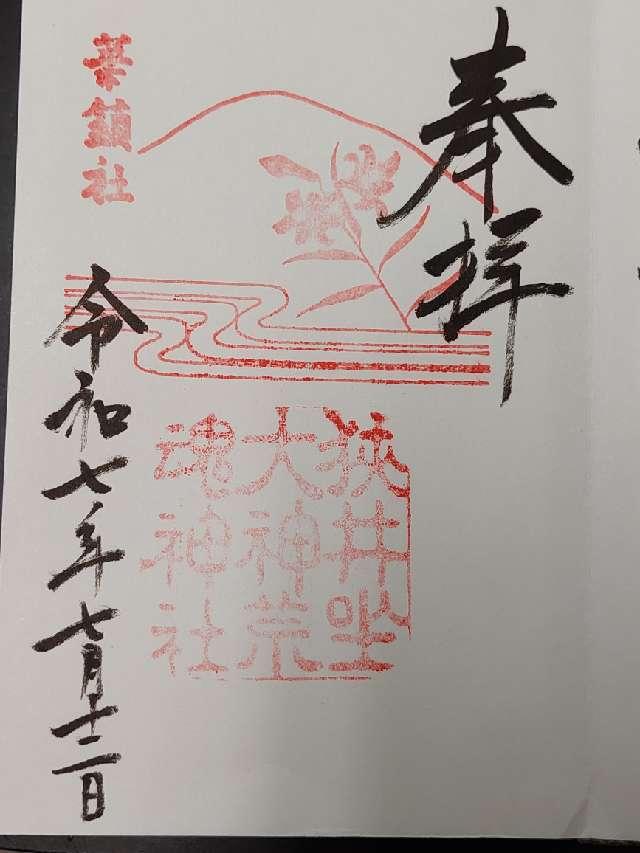 奉拝
狭井坐
大神荒
魂神社
華鎮社
令和七年七月十二日